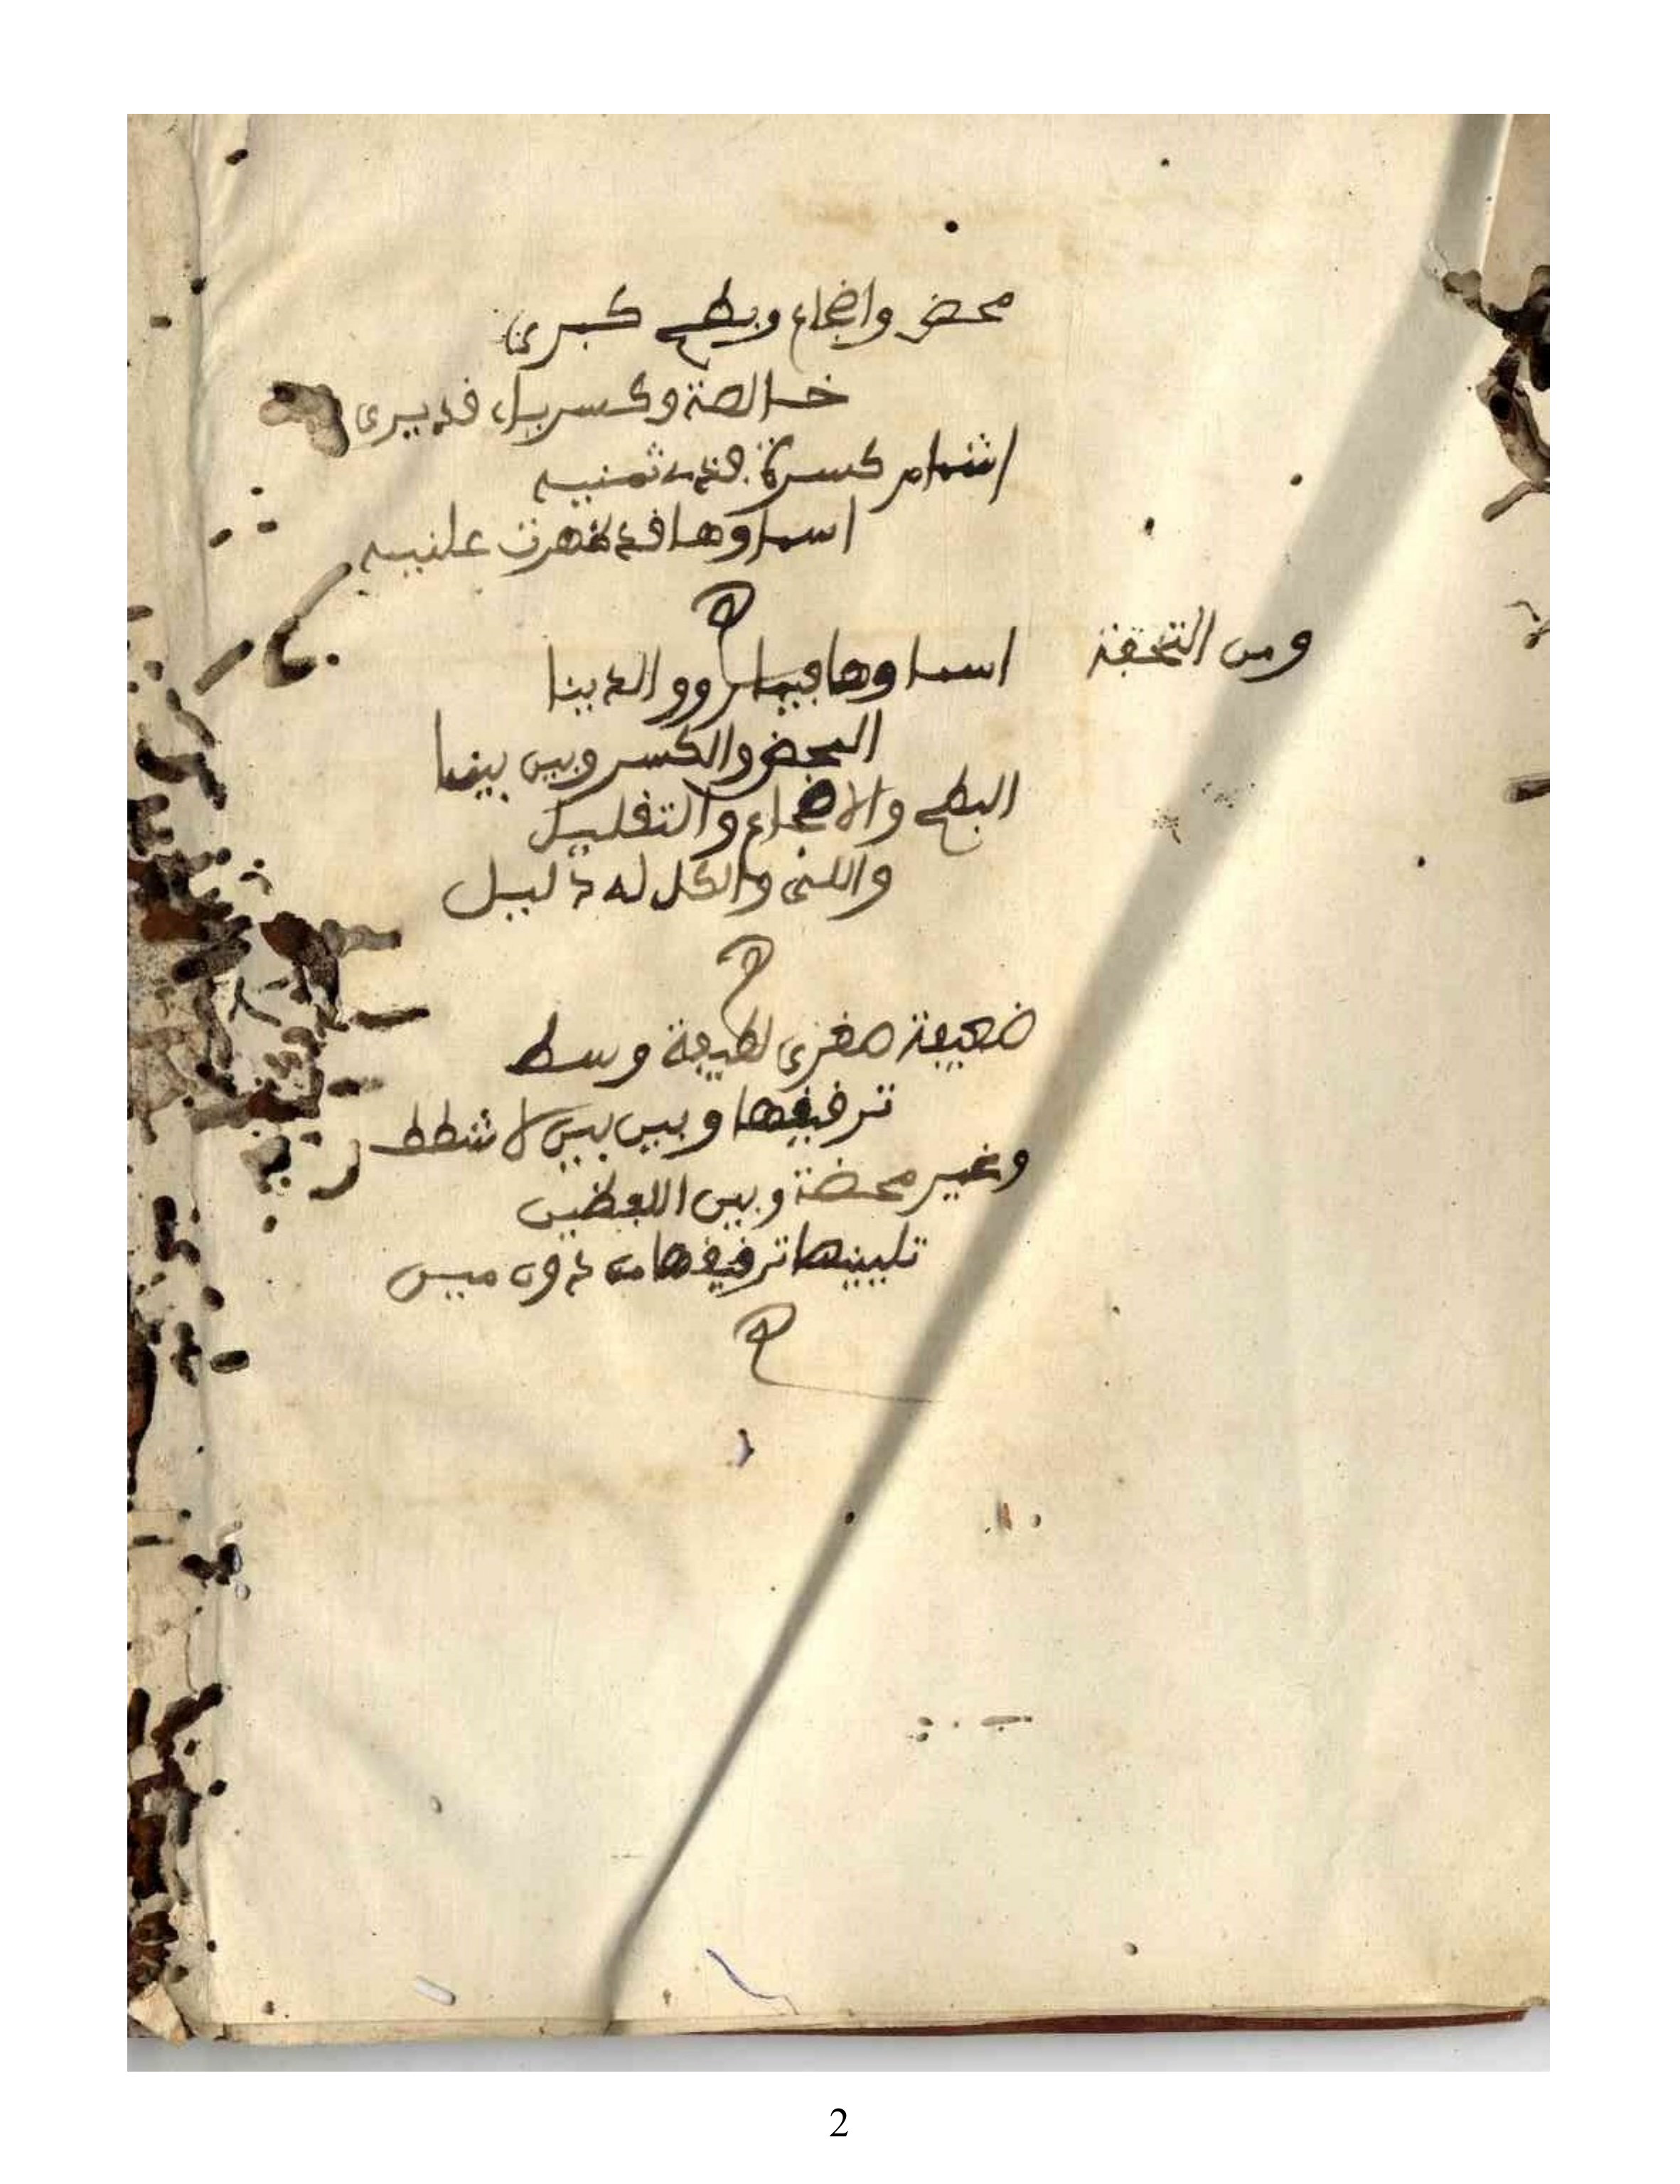 محض واضجاع وبطح كبرى
خالصة وكسر بل قد يرى
اشمام كسرة فذي ثمنيه
اسماوها قد ظهرت علنيه
ومن التحفة
اسماوها فيما رووا لدينا
المحض والكسر وبين بينا
البطح والاضجاع والتقليل
واللي والكل له دليل
ضعيفة صغرى لطيفة وسط
ترقيقها وبين بين لا شطط
وغير محضة وبين اللفظين
تليينها ترقيقها من دون مين
2